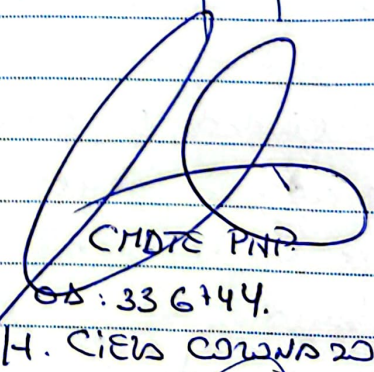 CMDTE PNP.
OA: 336744.
H. CIELO CORONADO